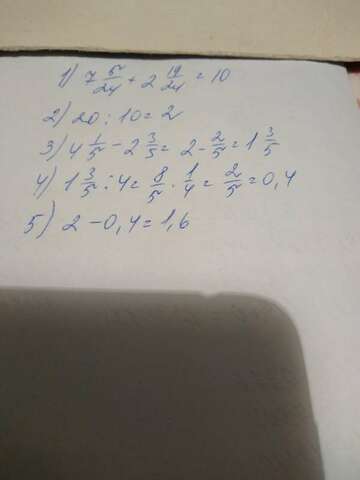 1) 7 5/24 + 2 19/24 = 10
2) 20 : 10 = 2
3) 4 1/5 - 2 3/5 = 2 - 2/5 = 1 3/5
4) 1 3/5 : 4 = 8/5 · 1/4 = 2/5 = 0,4
5) 2 - 0,4 = 1,6